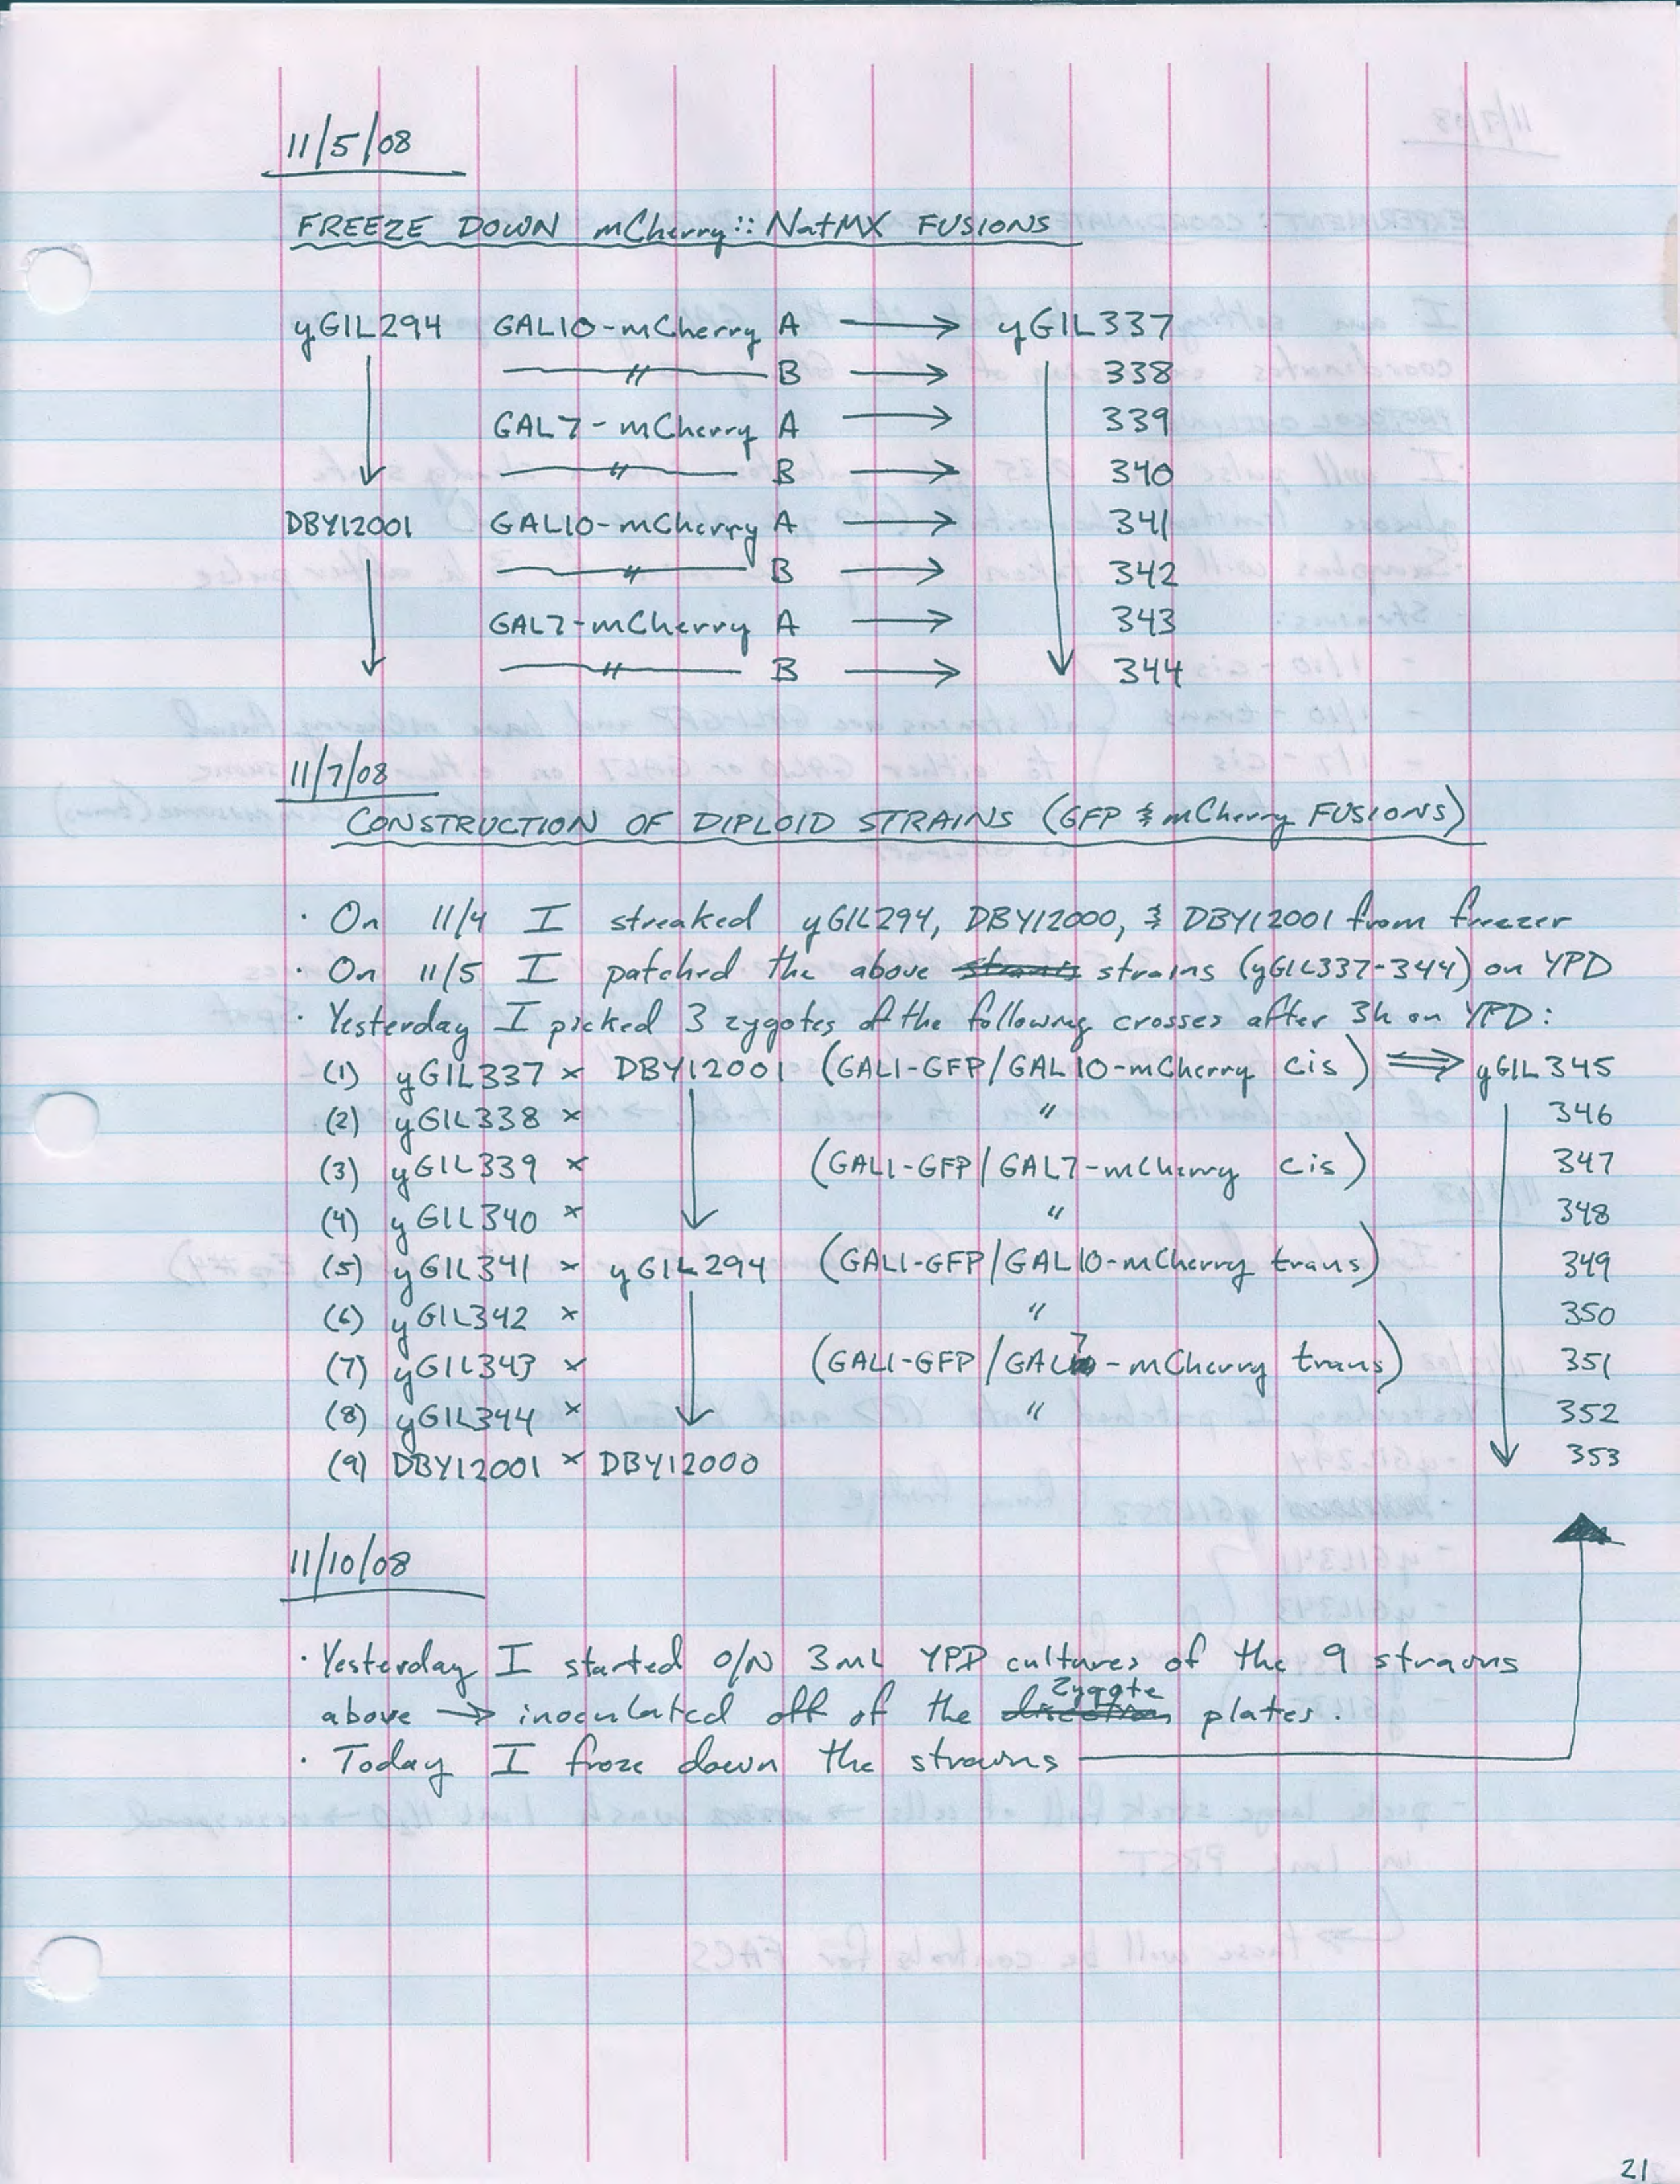 11/5/08
FREEZE DOWN mCherry::NatMX FUSIONS
yGIL294 GAL10-mCherry A → yGIL337
〃 B → 338
GAL7-mCherry A → 339
〃 B → 340
DBY12001 GAL10-mCherry A → 341
〃 B → 342
GAL7-mCherry A → 343
〃 B → 344
11/7/08
CONSTRUCTION OF DIPLOID STRAINS (GFP & mCherry FUSIONS)
· On 11/4 I streaked yGIL294, DBY12000, & DBY12001 from freezer
· On 11/5 I patched the above strains (yGIL337-344) on YPD
· Yesterday I picked 3 zygotes of the following crosses after 3h on YPD:
(1) yGIL337 × DBY12001 (GAL1-GFP/GAL10-mCherry cis) ⇒ yGIL345
(2) yGIL338 × 〃 346
(3) yGIL339 × (GAL1-GFP/GAL7-mCherry cis) 347
(4) yGIL340 × 〃 348
(5) yGIL341 × yGIL294 (GAL1-GFP/GAL10-mCherry trans) 349
(6) yGIL342 × 〃 350
(7) yGIL343 × (GAL1-GFP/GAL7-mCherry trans) 351
(8) yGIL344 × 〃 352
(9) DBY12001 × DBY12000 353
11/10/08
· Yesterday I started O/N 3mL YPD cultures of the 9 strains
above → inoculated off of the zygote plates.
· Today I froze down the strains
21